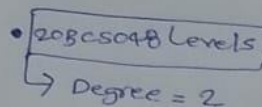 • 20BCS048 Levels
↳ Degree = 2